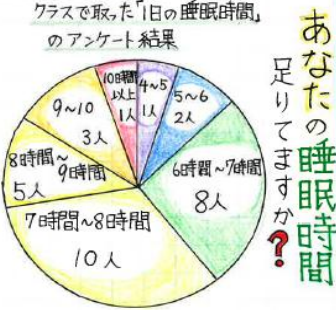 クラスで取った「1日の睡眠時間」
のアンケート結果
あなたの睡眠時間
足りてますか?
4~5
1人
5~6
2人
6時間~7時間
8人
7時間~8時間
10人
8時間~
9時間
5人
9~10
3人
10時間
以上
1人